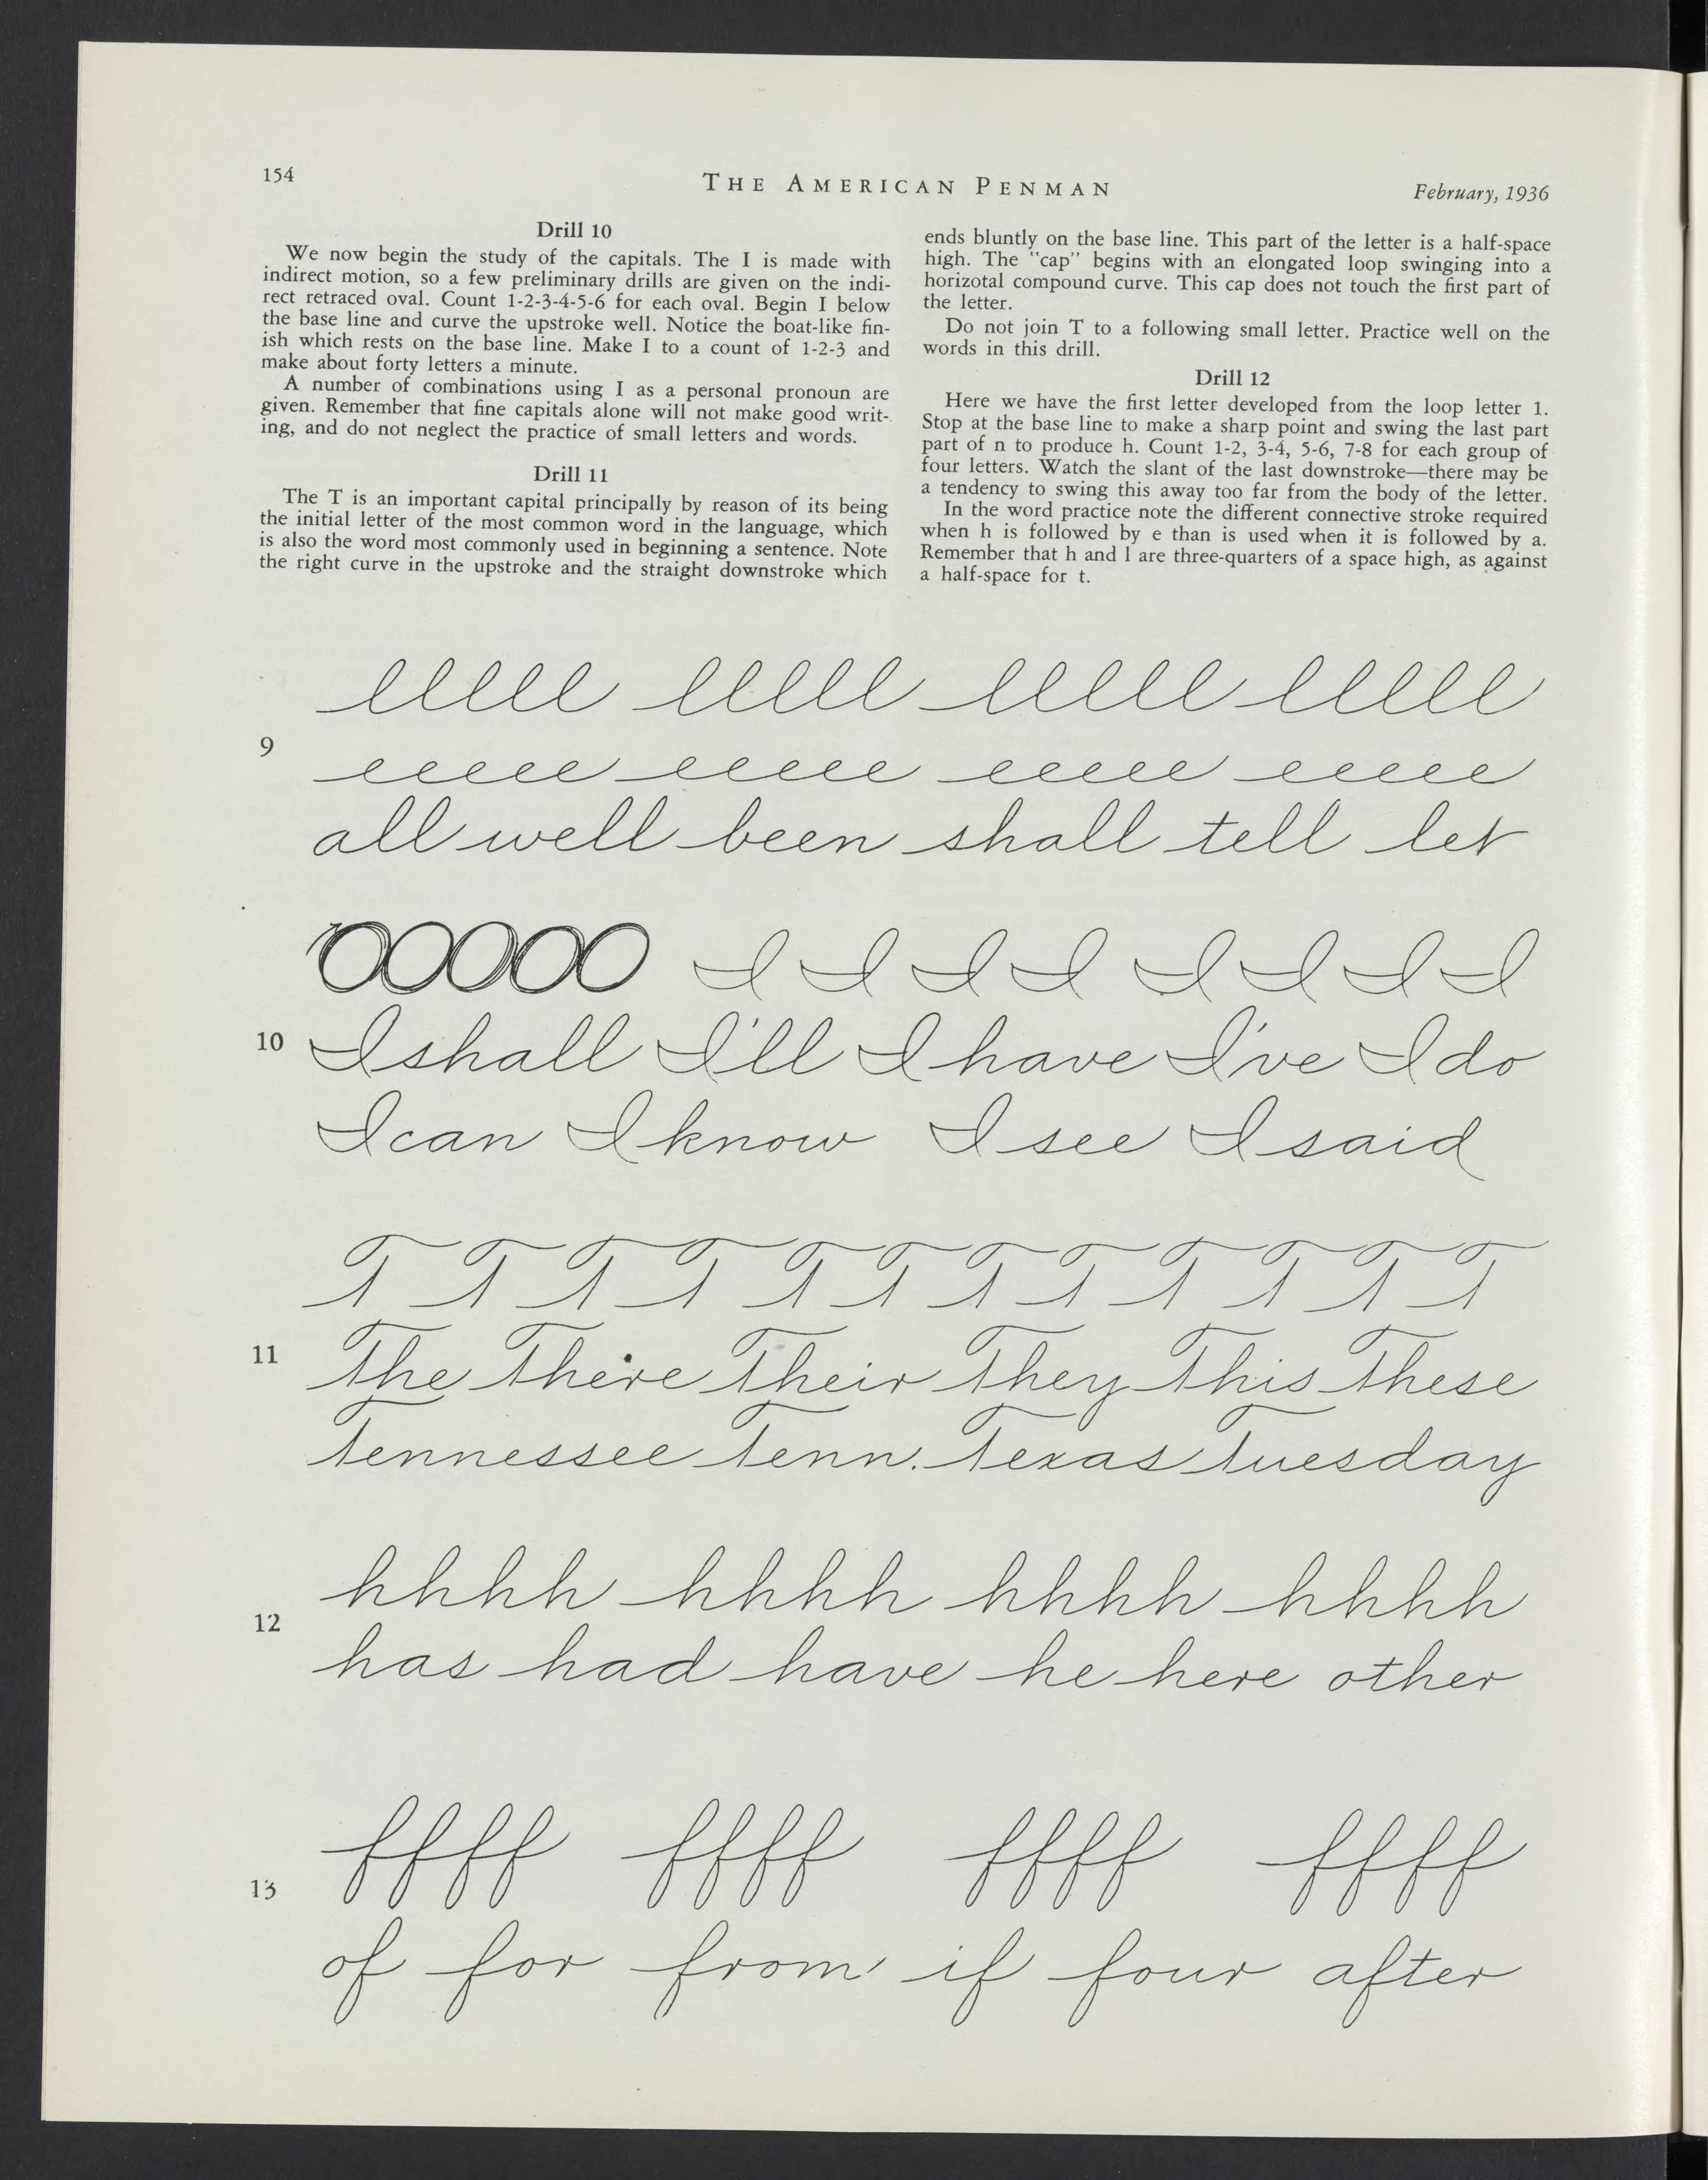 154
THE AMERICAN PENMAN
February, 1936
Drill 10
We now begin the study of the capitals. The I is made with
indirect motion, so a few preliminary drills are given on the indi-
rect retraced oval. Count 1-2-3-4-5-6 for each oval. Begin I below
the base line and curve the upstroke well. Notice the boat-like fin-
ish which rests on the base line. Make I to a count of 1-2-3 and
make about forty letters a minute.
A number of combinations using I as a personal pronoun are
given. Remember that fine capitals alone will not make good writ-
ing, and do not neglect the practice of small letters and words.
Drill 11
The T is an important capital principally by reason of its being
the initial letter of the most common word in the language, which
is also the word most commonly used in beginning a sentence. Note
the right curve in the upstroke and the straight downstroke which
ends bluntly on the base line. This part of the letter is a half-space
high. The "cap" begins with an elongated loop swinging into a
horizotal compound curve. This cap does not touch the first part of
the letter.
Do not join T to a following small letter. Practice well on the
words in this drill.
Drill 12
Here we have the first letter developed from the loop letter 1.
Stop at the base line to make a sharp point and swing the last part
part of n to produce h. Count 1-2, 3-4, 5-6, 7-8 for each group of
four letters. Watch the slant of the last downstroke—there may be
a tendency to swing this away too far from the body of the letter.
In the word practice note the different connective stroke required
when h is followed by e than is used when it is followed by a.
Remember that h and l are three-quarters of a space high, as against
a half-space for t.
lllll lllll lllll lllll
9
eeeee eeeee eeeee eeeee
all well been shall tell let
OOOOO I I I I I I I I
10
I shall I'll I have I've I do
I can I know I see I said
T T T T T T T T T T T T
11
The There Their They This These
Tennessee Tenn. Texas Tuesday
hhhh hhhh hhhh hhhh
12
has had have he here other
ffff ffff ffff ffff
13
of for from if four after